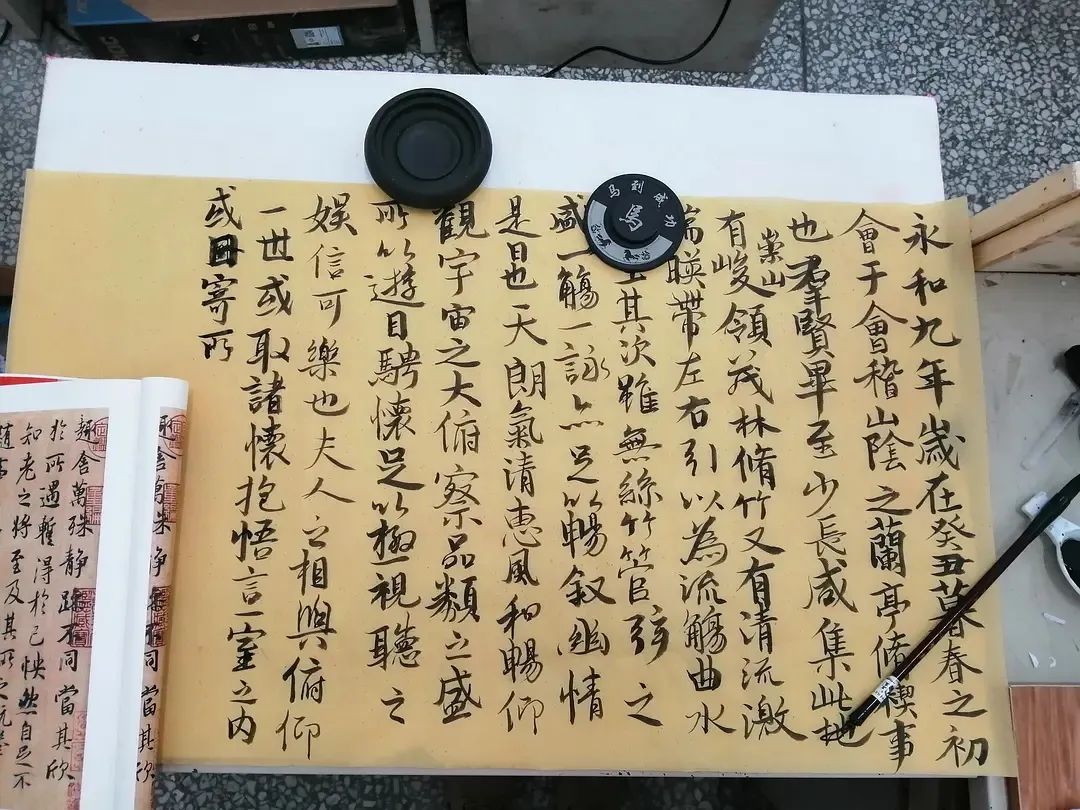 永和九年歲在癸丑暮春之初
會于會稽山陰之蘭亭脩禊事
也羣賢畢至少長咸集此地
有崇山峻領茂林脩竹又有清流激
湍暎帶左右引以為流觴曲水
其次雖無絲竹管弦之
盛一觴一詠亦足以暢叙幽情
是日也天朗氣清惠風和暢仰
觀宇宙之大俯察品類之盛
所以遊目騁懷足以極視聽之
娛信可樂也夫人之相與俯仰
一世或取諸懷抱悟言一室之內
或因寄所
馬到成功
馬
趣舍萬殊静躁不同當其欣
趣舍萬殊静躁不同當其欣
於所遇暫得於己怏然自足不
知老之將至及其所之既